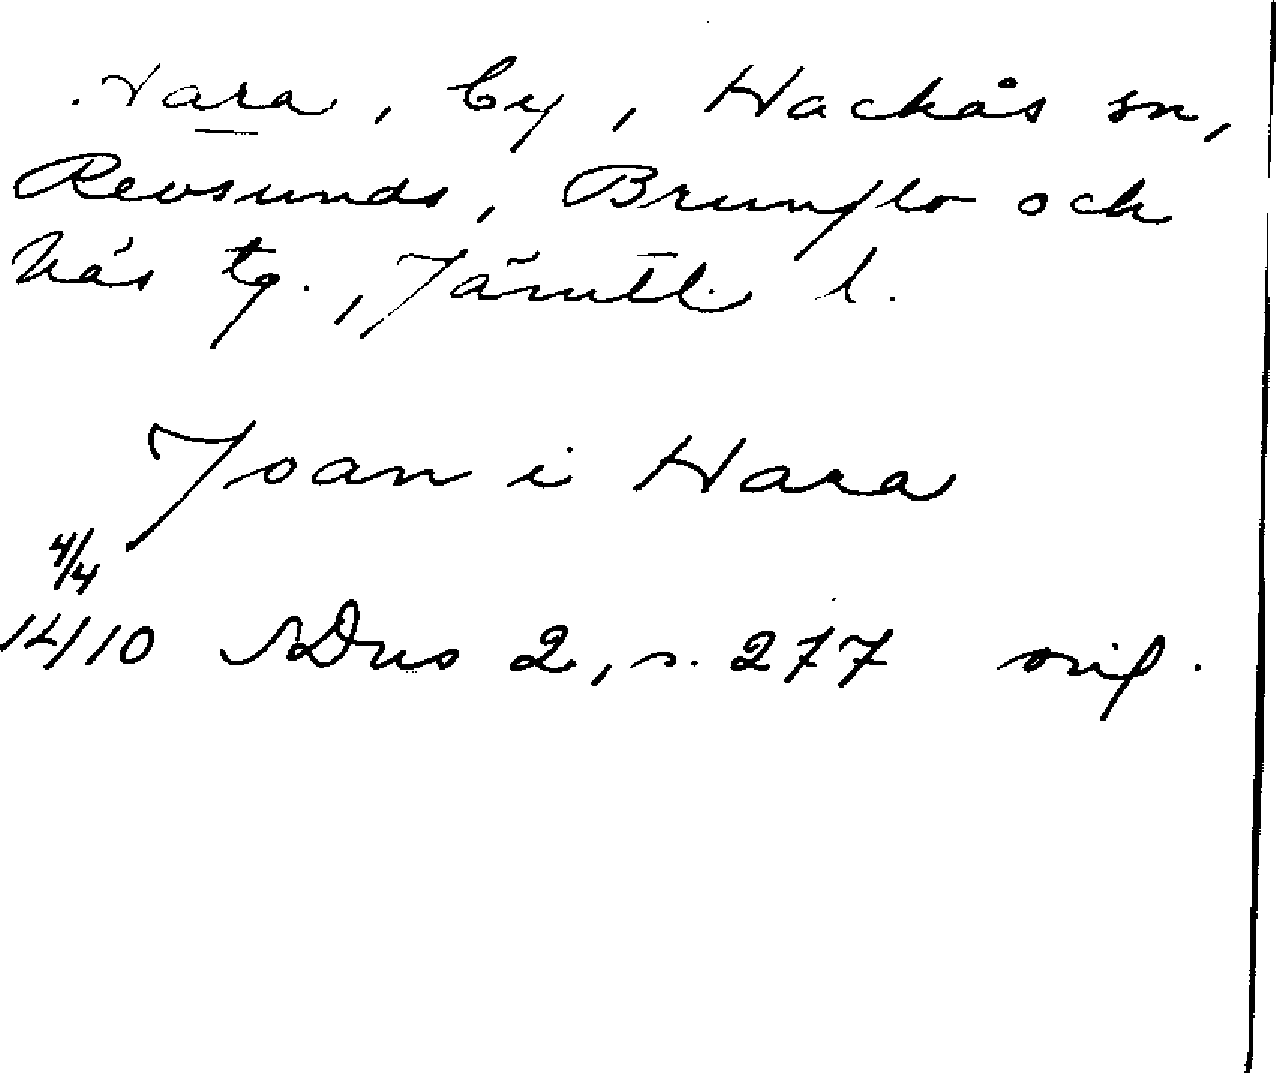 Hara, by, Hackås sn,
Revsunds, Brunflo och
Näs tg., Jämtl. l.
Joan i Hara
4/4
1410 SDns 2, s. 277 orig.